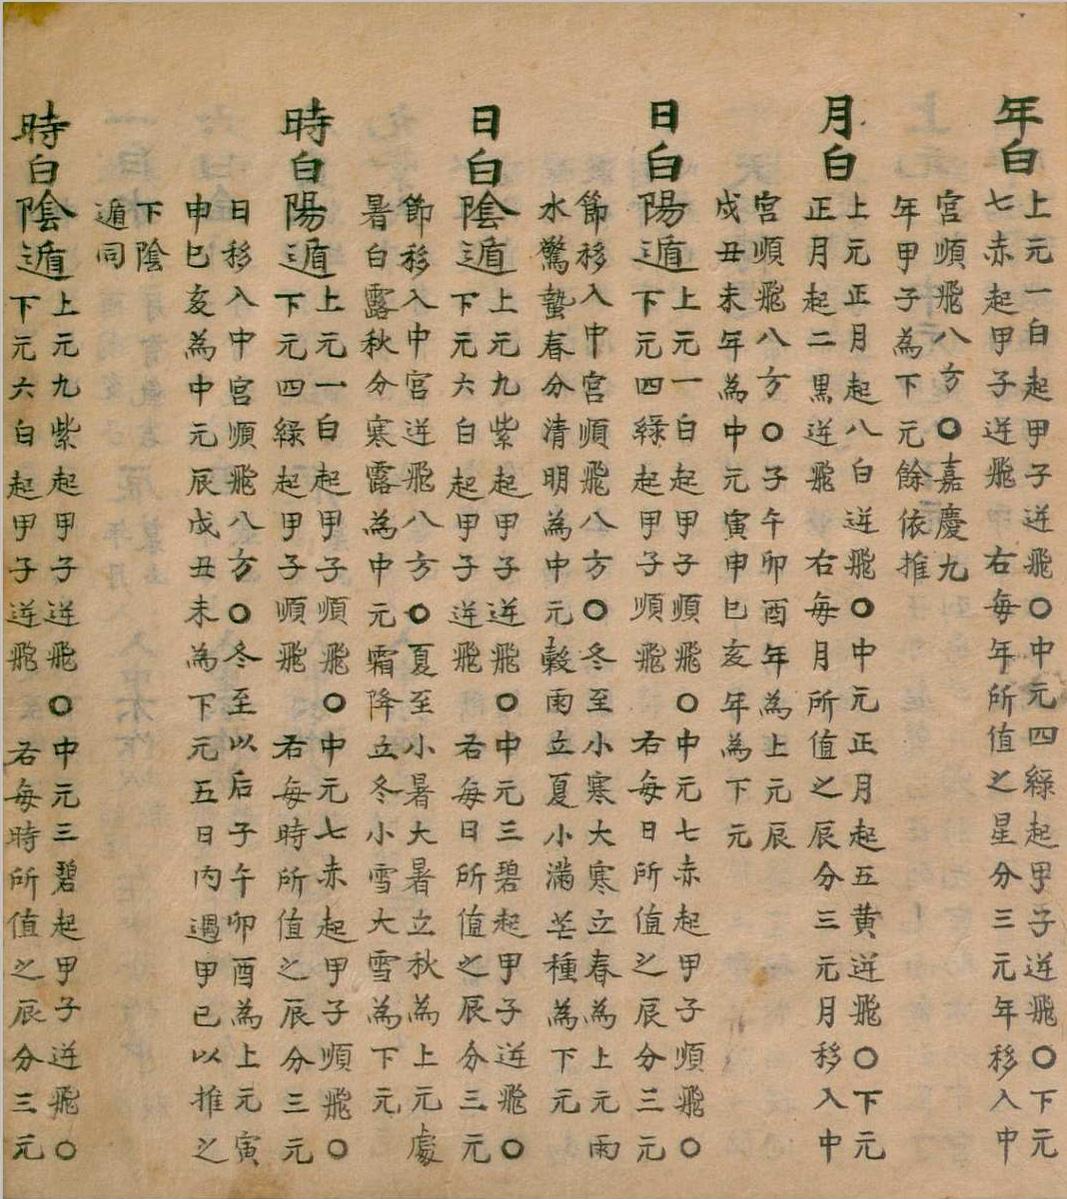 年白
上元一白起甲子逆飛〇中元四綠起甲子逆飛〇下元
七赤起甲子逆飛 右每年所值之星分三元年移入中
宮順飛八方〇嘉慶九
年甲子為下元餘依推
月白
上元正月起八白逆飛〇中元正月起五黃逆飛〇下元
正月起二黑逆飛 右每月所值之辰分三元月移入中
宮順飛八方〇子午卯酉年為上元辰
戍丑未年為中元寅申巳亥年為下元
日白陽遁
上元一白起甲子順飛〇中元七赤起甲子順飛〇
下元四綠起甲子順飛 右每日所值之辰分三元
節移入中宮順飛八方〇冬至小寒大寒立春為上元雨
水驚蟄春分清明為中元穀雨立夏小滿芒種為下元
日白陰遁
上元九紫起甲子逆飛〇中元三碧起甲子逆飛〇
下元六白起甲子逆飛 右每日所值之辰分三元
節移入中宮逆飛八方〇夏至小暑大暑立秋為上元處
暑白露秋分寒露為中元霜降立冬小雪大雪為下元
時白陽遁
上元一白起甲子順飛〇中元七赤起甲子順飛〇
下元四綠起甲子順飛 右每時所值之辰分三元
日移入中宮順飛八方〇冬至以后子午卯酉為上元寅
申巳亥為中元辰戍丑未為下元五日內遇甲己以推之
下陰
遁同
時白陰遁
上元九紫起甲子逆飛〇中元三碧起甲子逆飛〇
下元六白起甲子逆飛 右每時所值之辰分三元